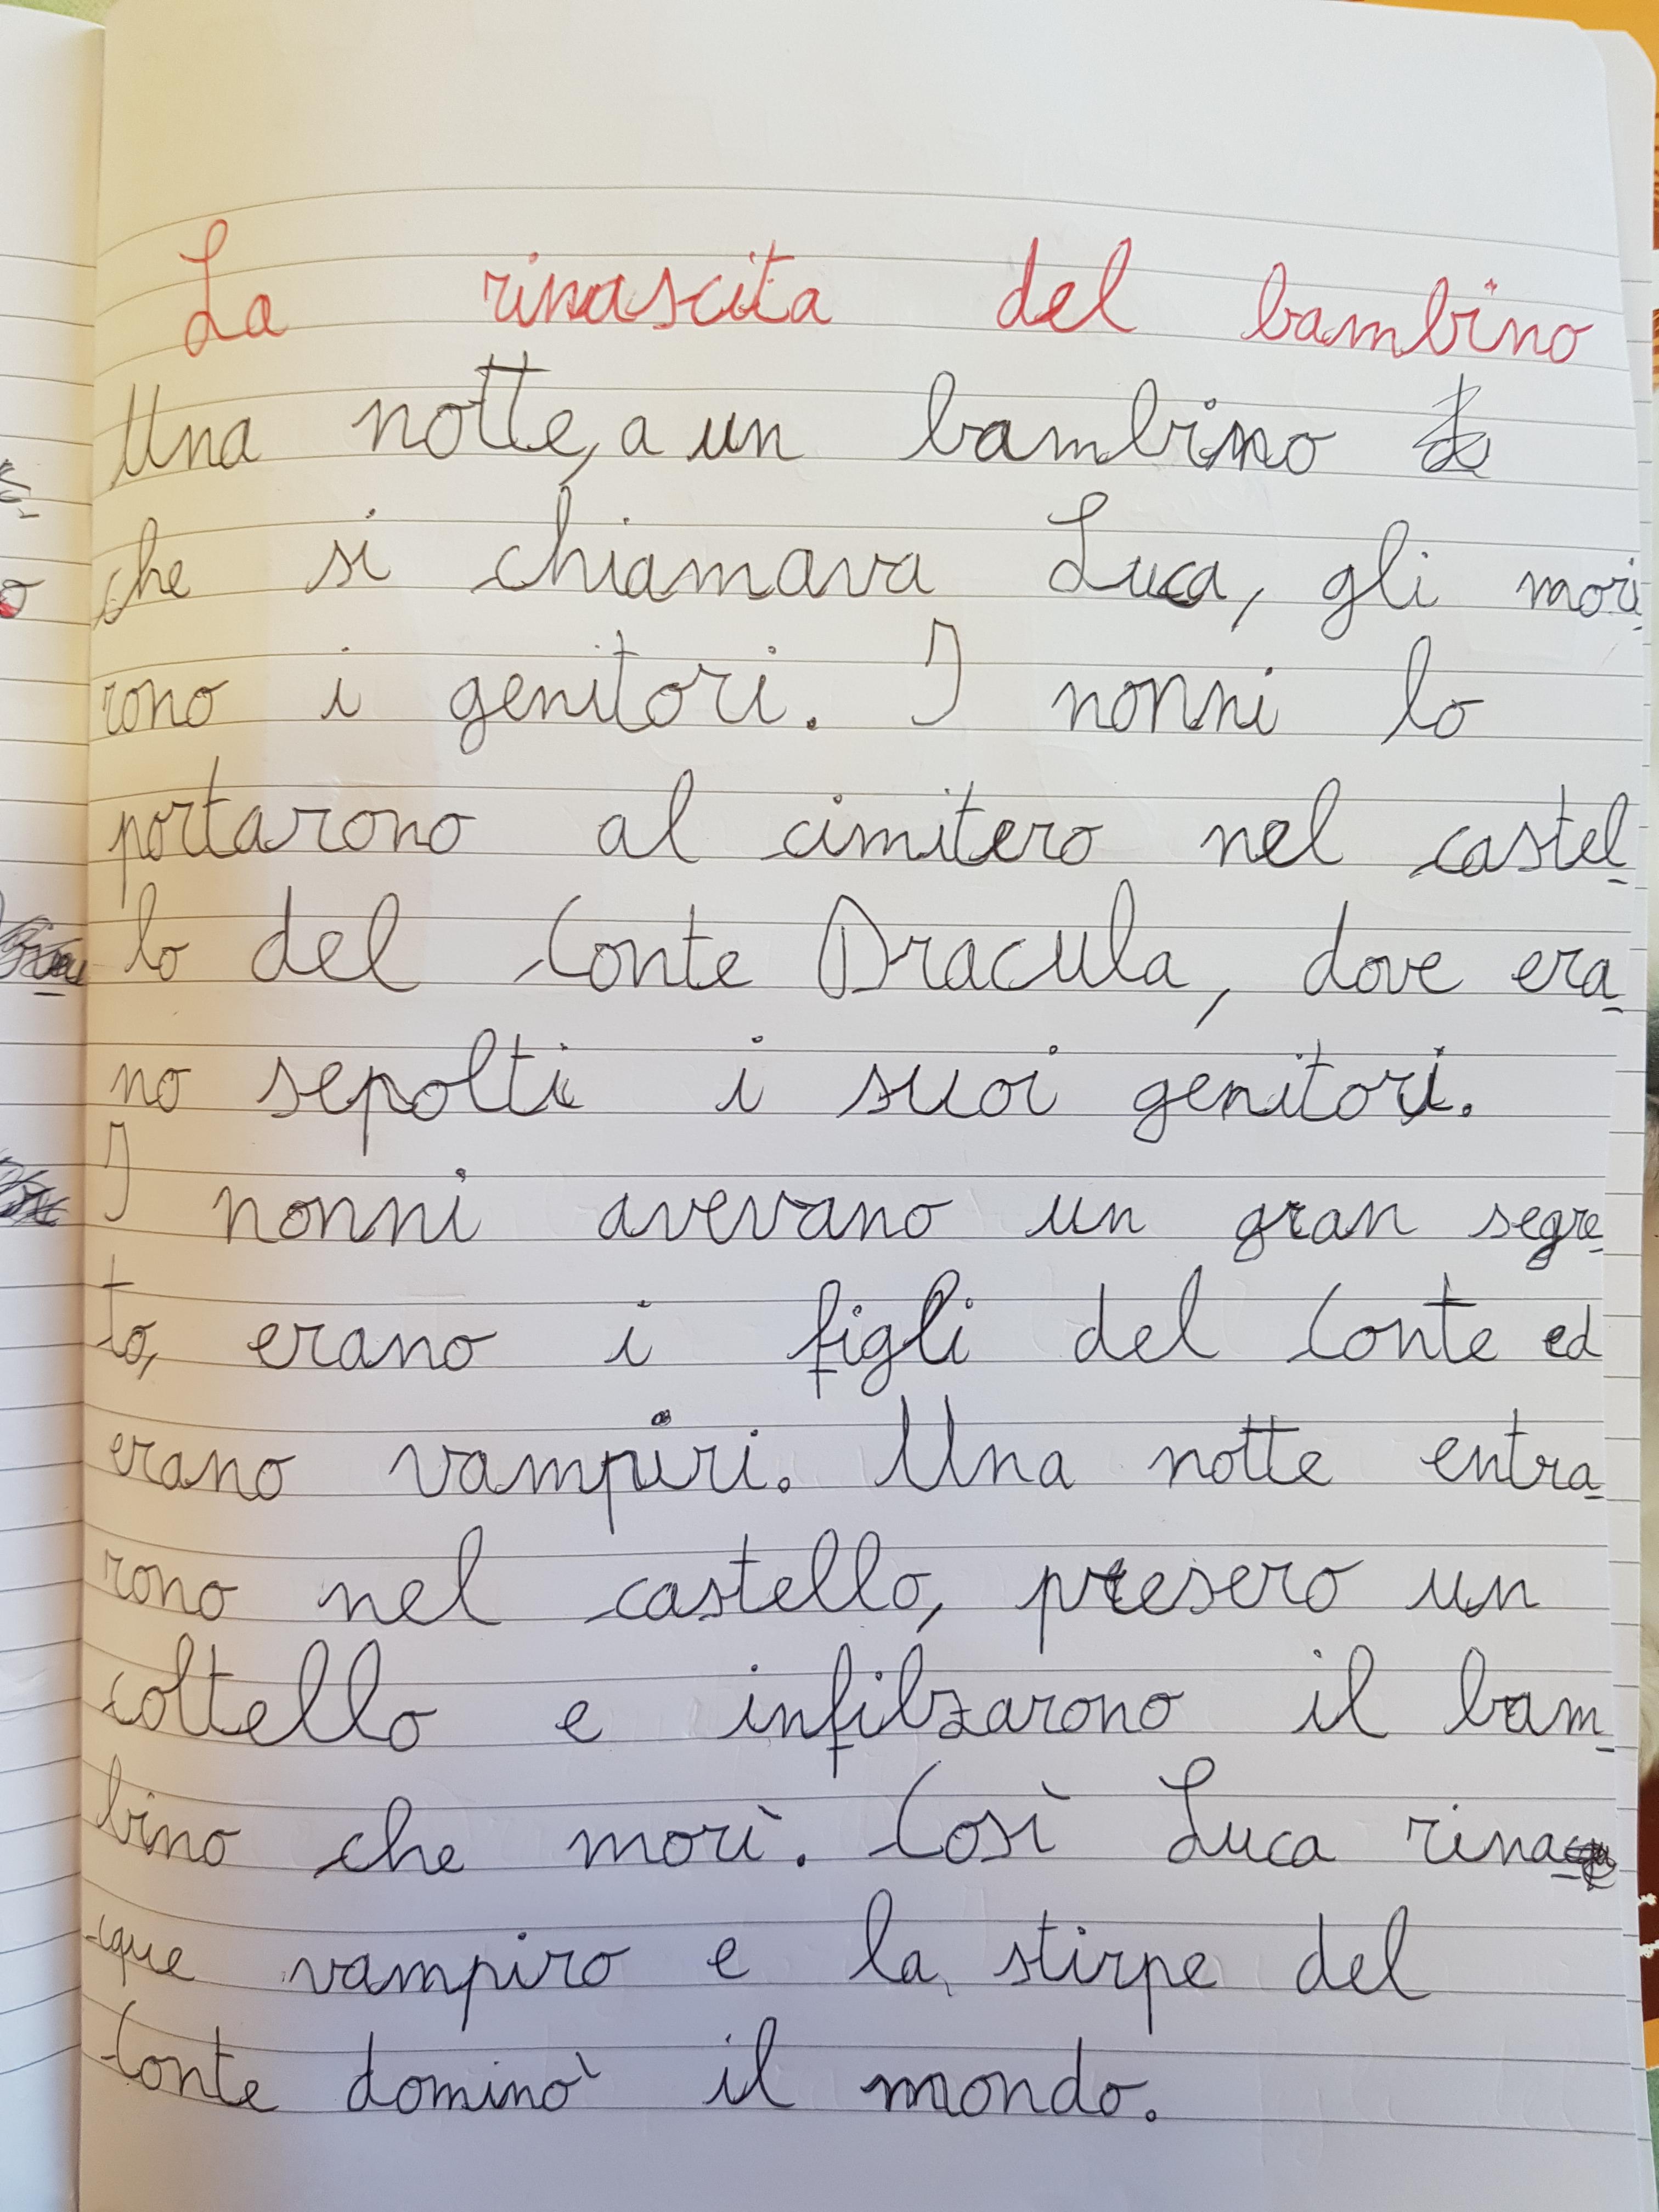 La rinascita del bambino
Una notte, a un bambino
che si chiamava Luca, gli mori_
rono i genitori. I nonni lo
portarono al cimitero nel castel_
lo del Conte Dracula, dove era_
no sepolti i suoi genitori.
I nonni avevano un gran segre_
to, erano i figli del Conte ed
erano vampiri. Una notte entra_
rono nel castello, presero un
coltello e infilzarono il bam_
bino che morì. Così Luca rina_
cque vampiro e la stirpe del
Conte dominò il mondo.